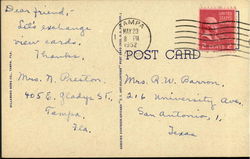 Dear friend,-
Let's exchange
view cards.
Thanks,
Mrs. N. Preston.
405 E. Gladys St.,
Tampa,
Fla.
TAMPA
MAY 23
8 PM
1952
POST CARD
Mrs. R. W. Barron,
216 University Ave,
San Antonio, 1,
Texas